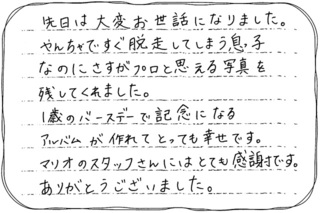 先日は大変お世話になりました。
やんちゃですぐ脱走してしまう息っ子
なのにさすがプロと思える写真を
残してくれました。
1歳のバースデーで記念になる
アルバムが作れてとっても幸せです。
マリオのスタッフさんにはとても感謝です。
ありがとうございました。